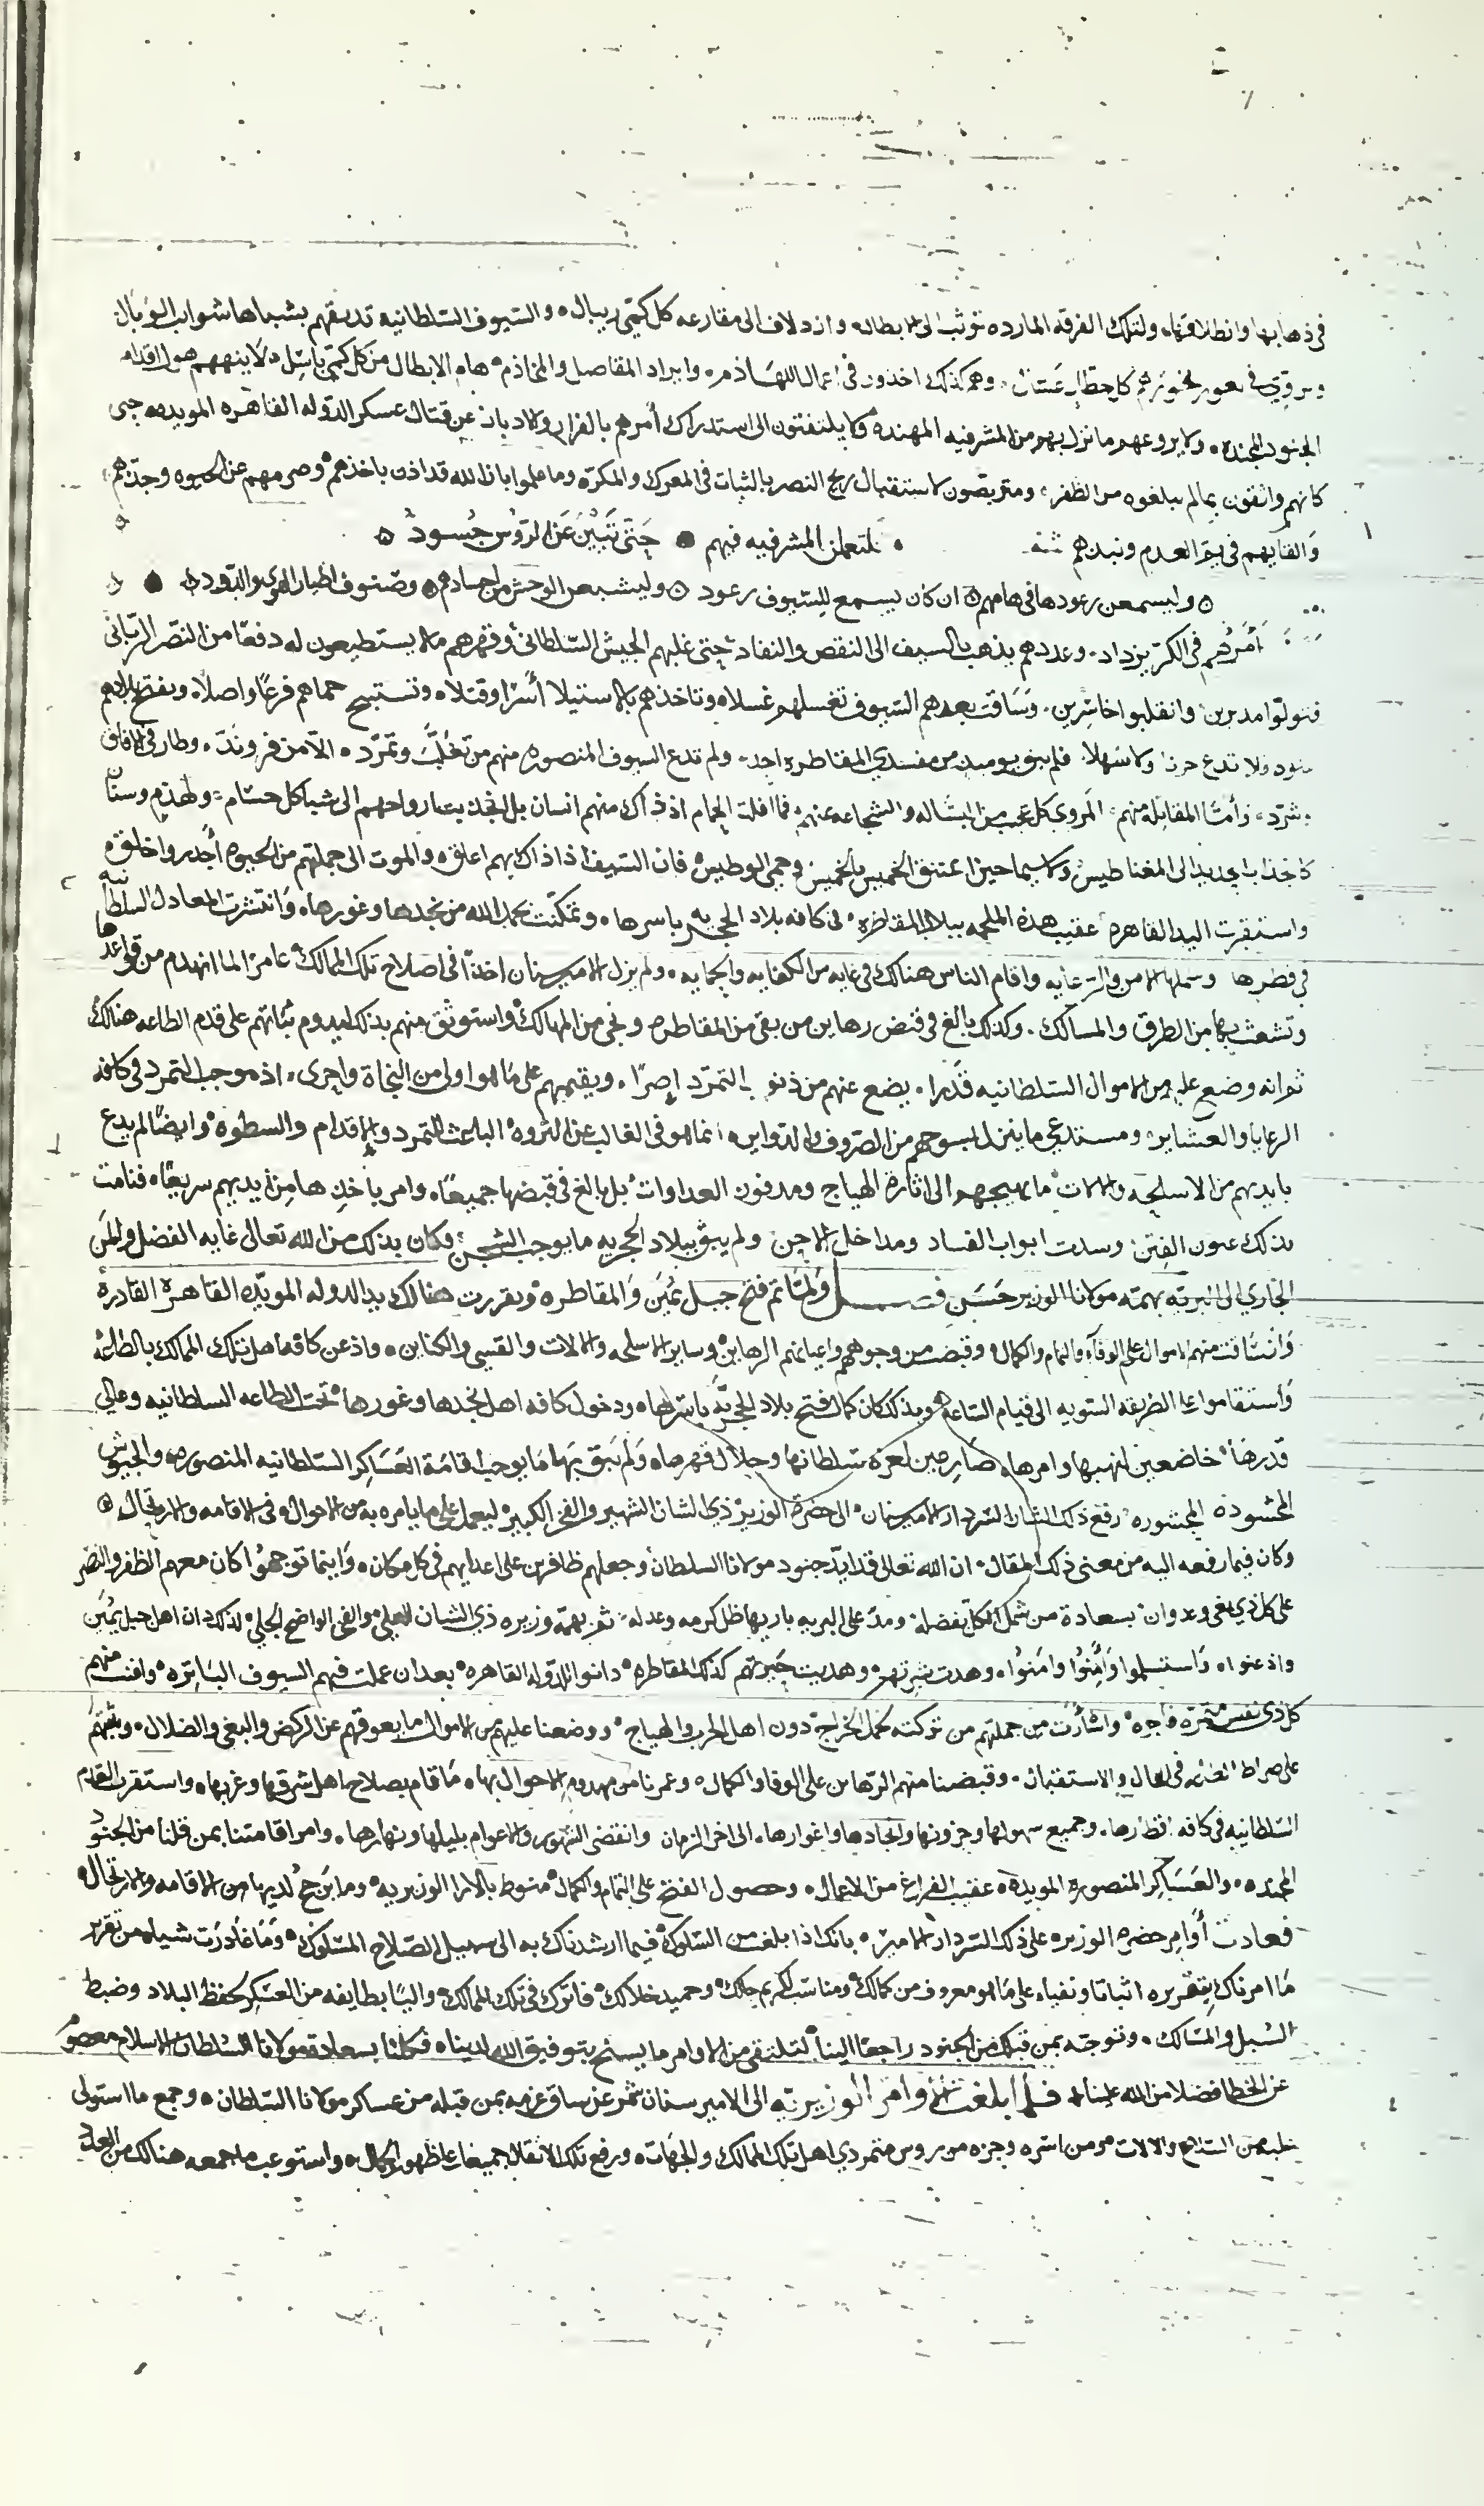 في ذهابها وانطلاقها، ولتلك الفرقه المارده توثب الى الابطال، وازدلاف الى مقارعه كل كمي ريبال، والسيوف السلطانيه تديقهم بشباها شواب الوبال
في نحورهم كل حطال عسال، وهم كذلك اخذون في اعمال اللهاذم، وايراد المقاصل والمخاذم، هام الابطال من كل كمي باسل، لا ينههم هول اقدام
الجنود المجنده، ولا يروعهم ما نزل بهم من المشرفيه المهنده، ولا يلتفتون الى استدراك امرهم بالفرار ولا ديان عن قتال عسكر الدوله القاهره المويده حتى
كانهم واثقون بما لم يبلغوه من الظفر، ومتربصون لاستقبال ريح النصر بالثبات في المعرك والمكر، وما علموا بان الله قد اذن باخذهم، وصرمهم عن الحيوه وجذهم،
والقايهم في يم العدم ونبذهم لتعملن المشرفيه فيهم حتى تبين عن الروس جسود
وليسمعن رعودها في هامهم ان كان يسمع للسيوف رعود وليشبعن الوحش من اجسادهم وصنوف اطيار الهوى والدود
امرهم في الكر يزداد، وعددهم يذهب بالسيف الى النقص والنفاد، حتى غلبهم الجيش السلطاني، وقهرهم ما لا يستطيعون له دفعا من النصر الرباني
فتولوا مدبرين، وانقلبوا خاسرين، وساقت بعدهم السيوف تغسلهم غسلا، وتاخذهم بالاستيلا اسرا وقتلا، وتستبيح حماهم فرعا واصلا، ويفتح بلادهم
ولا تدع حزنا ولا سهلا، فلم يبق يوميذ من مفسدي المقاطره احد، ولم تدع السيوف المنصوره منهم من تغلب وتمرد، الا من فر وند، وطار في الافاق
وشرد، واما المقاتله منهم، المروي كل عجب من البساله والشجاعه عنهم، فما افلت الحمام اذ ذاك منهم انسان بل انجذبت ارواحهم الى شبا كل حسام، ولهذم وسنان
كانجذاب الحديد الى المغناطيس، ولا سيما حين اعتنق الخميس بالخميس، وحمي الوطيس، فان السيف اذ ذاك بهم اعلق، والموت الى جملتهم من الحيوه اجدر واخلق،
واستقرت اليد القاهره عقيب هذه الملحمه ببلاد المقاطره، في كافه بلاد الحجريه باسرها، وتمكنت بحمد الله من نجدها وغورها، وانتشرت المعادل السلطانيه
في قطرها وشملها الامن والرعايه واقام الناس هنالك في غايه من الكفايه والحمايه، ولم يزل الامير سنان اخذا في اصلاح تلك الممالك، عامرا لما انهدم من قواعدها
وتشعث بها من الطرق والمسالك، وكذلك بالغ في قبض رهاين من بقي من المقاطره ونجي من المهالك، واستوثق منهم بذلك ليدوم ثباتهم على قدم الطاعه هنالك
ثم انه وضع عليهم من الاموال السلطانيه قدرا، يضع عنهم من ذنوب التمرد اصرا، ويقيمهم على ما هو اولى من النجاة واحرى، اذ موجب التمرد في كافه
الرعايا والعشاير، ومستدعي ما ينزل بسوحهم من الصروف والدواير، انما هو في الغالب عن الثروه الباعث للتمرد والاقدام والسطوه، وايضا لم يدع
بايديهم من الاسلحه والالات ما يهيجهم الى اثارة الهياج ومدفون العداوات، بل بالغ في قبضها جميعا، وامر باخذها من ايديهم سريعا، فنامت
بذلك عيون الفتن وسدت ابواب الفساد ومداخل الاحن ولم يبق ببلاد الحجريه ما يوجب الشجن، وكان بذلك من الله تعالى غايه الفضل والمن
الجاري الى البريه بهمه مولانا الوزير حسن فصل ولما تم فتح جبل يمين والمقاطره، وتقررت هنالك يد الدوله المويده القاهره القادره
وانساقت منهم الاموال على الوفا والتمام والكمال، وقبضت من وجوههم واعيانهم الرهاين، وساير الاسلحه والالات والقسي والكناين، واذعن كافه اهل تلك الممالك بالطاعه
واستقاموا على الطريقه السويه الى قيام الساعه، وبذلك كان كمال فتح بلاد الحجريه باسرها، ودخول كافه اهل نجدها وغورها، تحت الطاعه السلطانيه وعالي
قدرها، خاضعين لنهيها وامرها، صارعين لعزة سلطانها وجلال قهرها، ولم يبق بها ما يوجب اقامة العساكر السلطانيه المنصوره، والجيوش
المحشوده المحشوره، رفع ذلك الشان السردار الامير سنان، الى حضرة الوزير ذي الشان الشهير والفخر الكبير، ليعمل على ما يامره به من الاحوال، وفي الاقامه والارتحال
وكان فيما رفعه اليه من معنى ذلك المقال، ان الله تعالى قد ايد جنود مولانا السلطان، وجعلهم ظافرين على اعدايهم في كل مكان، واينما توجهوا كان معهم الظفر والنصر
على كل ذي بغي وعدوان بسعادة من شمل الكل بفضله، ومد على البريه باريها ظل كرمه وعدله، ثم بهمه وزيره ذي الشان العلي، والفخر الواضح الجلي، لذلك دان اهل جبل يمين
واذعنوا، واستسلموا وامنوا وامنوا، وهدت شرتهم، وهديت حيرتهم كذلك المقاطره، دانوا للدوله القاهره، بعد ان عملت فيهم السيوف الباتره، وافنت منهم
كل ذي نفس متمرده فاجره، واسارت من جملتهم من تركته لحمل الخراج، دون اهل الحرب والهياج، ووضعنا عليهم من الاموال ما يعوقهم عن الركض والبغي والضلال، ويثبتهم
على صراط في الحال والاستقبال، وقبضنا منهم الرهاين على الوفا والكمال، وعمرنا من مهدوم الاحوال بها، ما قام بصلاح اهل شرقها وغربها، واستقرت القدم
السلطانيه في كافه اقطارها، وجميع سهولها وحزونها وانجادها واغوارها، الى اخر الزمان وانقضى الشهور والاعوام بليلها ونهارها، وامر اقامتنا بمن قبلنا من الجنود
المجنده، والعساكر المنصورة المويدة، عقيب الفراغ من الاعمال، وحصول الفتح على التمام والكمال، منوط بالارا الوزيريه، وما يرجح لديها من الاقامه والارتحال
فعادت اوامر حضره الوزير، على ذلك السردار الامير، بانك اذا بلغت من السلوك، فيما ارشدناك به الى سبيل الصلاح المسلوك، وما غادرت شيا من تقرير
ما امرناك بتقريره اثباتا ونفيا، على ما هو معروف من كمالك، ومناسب لكريم جلالك، وحميد خلالك، فاترك في تلك الممالك، واليا بطايفه من العسكر لحفظ البلاد وضبط
السبل والمسالك، وتوجه بمن قبلك من الجنود راجعا الينا، لتتلقى من الاوامر ما يسنح بتوفيق الله لدينا، فكلنا بسعادة مولانا السلطان الاسلام معصوم
عن الخطا فضلا من الله علينا، فلما بلغت الاوامر الوزيريه الى الامير سنان شمر عن ساق عزمه بمن قبله من عساكر مولانا السلطان، وجمع ما استولى
عليه من السلاح والالات ومن اسره وجزه من روس متمردي اهل تلك الممالك والجهات، ورفع تلك الاثقال جميعا على ظهور الجمال، واستوعب ما جمعه هنالك من العدد